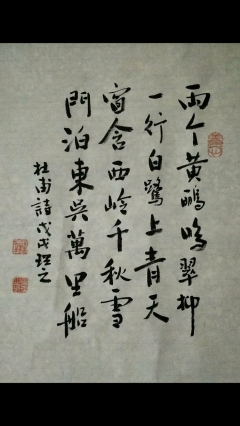 两个黄鸝鳴翠柳
一行白鷺上青天
窗含西岭千秋雪
門泊東吳萬里船
杜甫詩戊戌